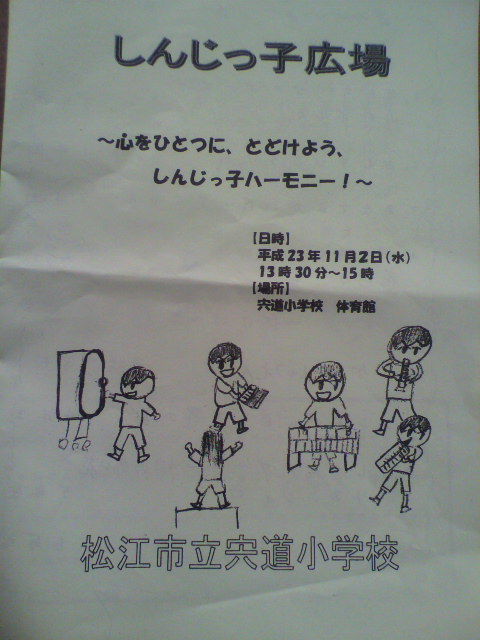 しんじっ子広場
～心をひとつに、とどけよう、
しんじっ子ハーモニー！～
【日時】
平成23年11月2日(水)
13時30分～15時
【場所】
宍道小学校 体育館
松江市立宍道小学校